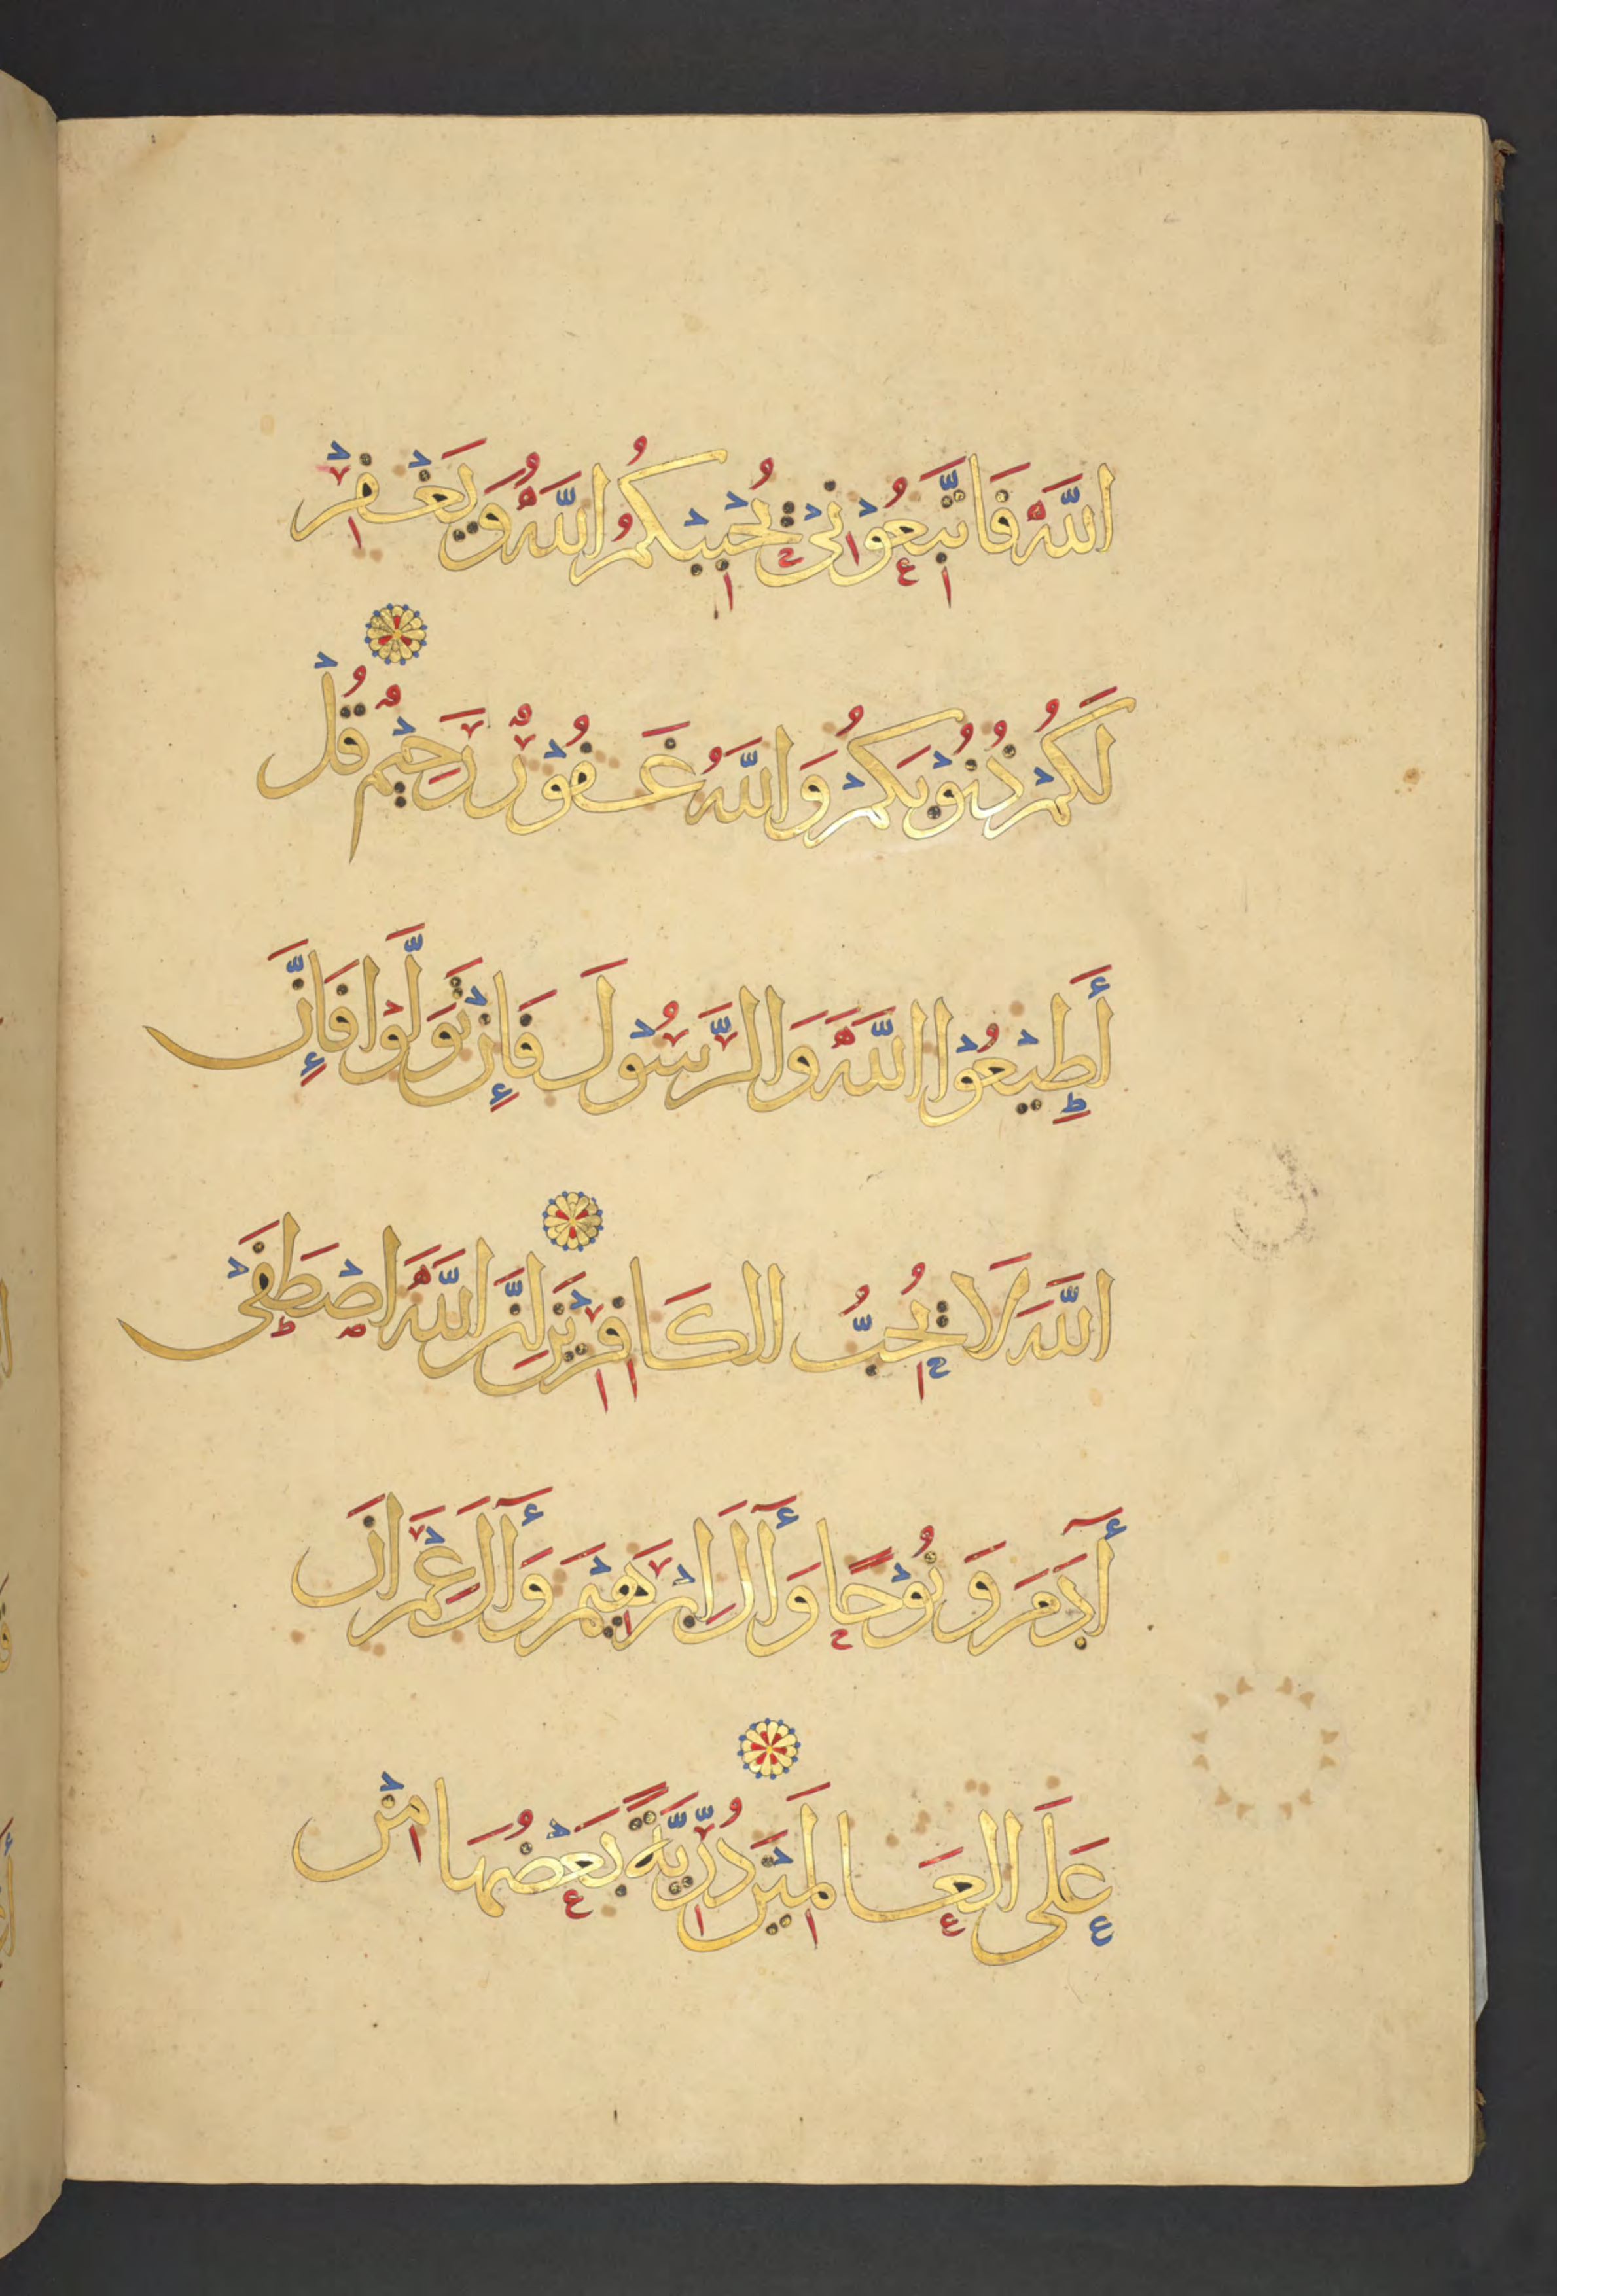 اللَّهَ فَاتَّبِعُوْنِيْ يُحْبِبْكُمُ اللَّهُ وَيَغْفِرْ
لَكُمْ ذُنُوْبَكُمْ وَاللَّهُ غَفُوْرٌ رَحِيْمٌ قُلْ
أَطِيْعُوْا اللَّهَ وَالرَّسُوْلَ فَإِنْ تَوَلَّوْا فَإِنَّ
اللَّهَ لَا يُحِبُّ الكَافِرِيْنَ إِنَّ اللَّهَ اصْطَفَىْ
أٓدَمَ وَنُوْحًا وَأٓلَ اِبْرَهِيْمَ وَأٓلَ عِمْرَانَ
عَلَى العَالَمِيْنَ ذُرِّيَّةً بَعْضُهَا مِنْ